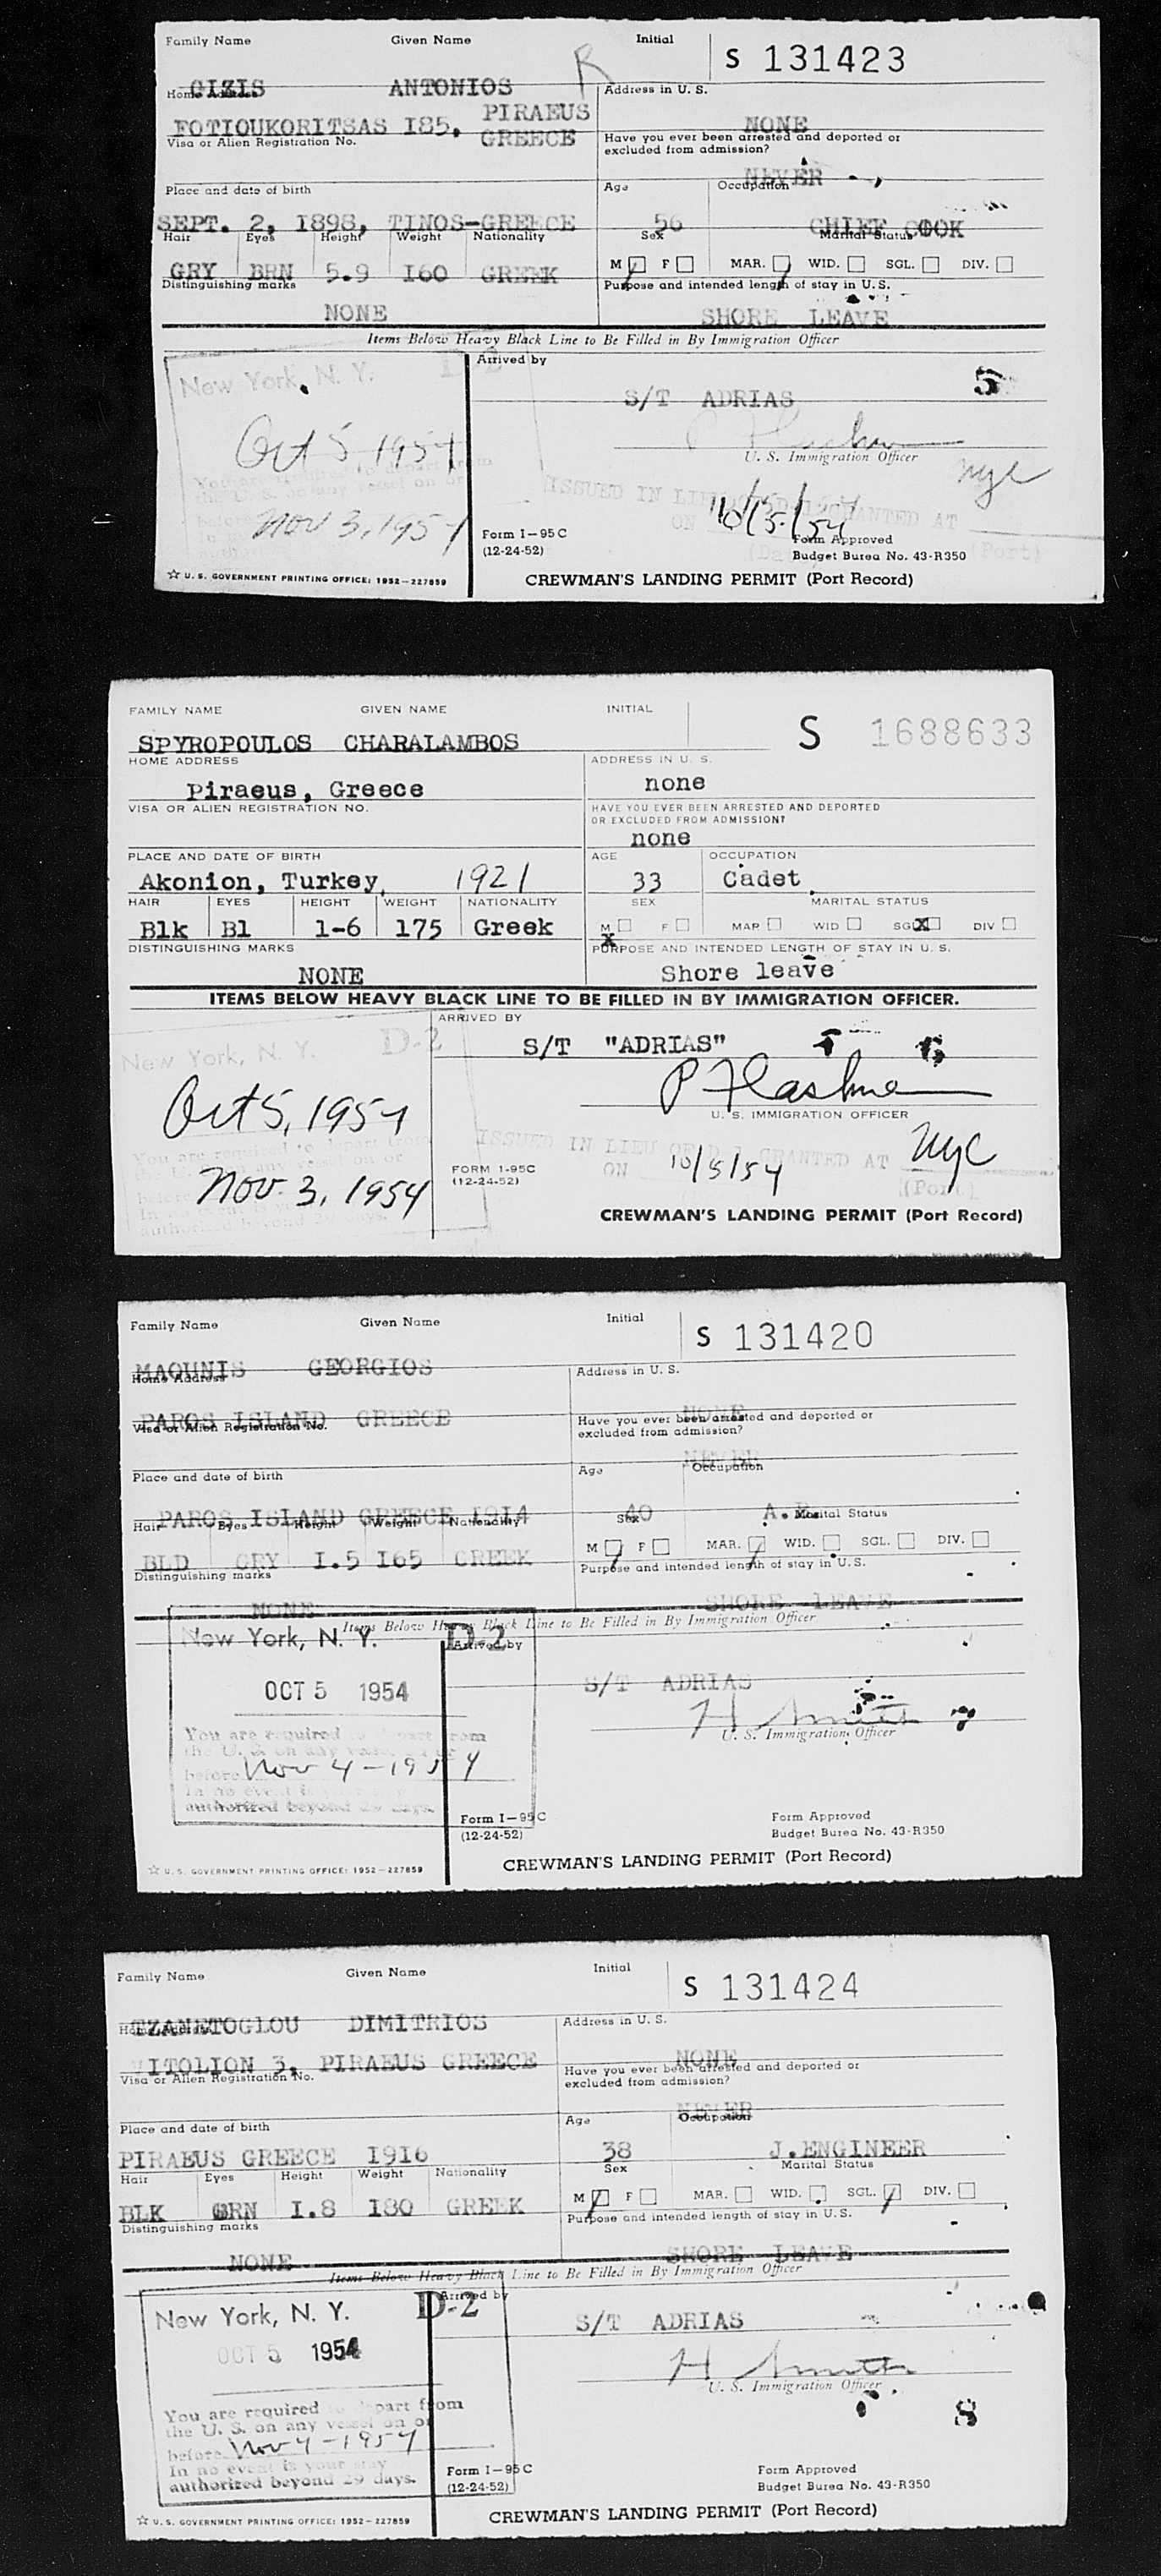 Family Name Given Name Initial S 131423
GIZIS ANTONIOS R
Home Address Address in U. S.
FOTIOUKORITSAS I85, PIRAEUS GREECE NONE
Visa or Alien Registration No. Have you ever been arrested and deported or
excluded from admission?
NEVER
Place and date of birth Age Occupation
SEPT. 2, I898, TINOS-GREECE 56 CHIEF COOK
Hair Eyes Height Weight Nationality Sex Marital Status
GRY BRN 5.9 I60 GREEK M F MAR. WID. SGL. DIV.
Distinguishing marks Purpose and intended length of stay in U. S.
NONE SHORE LEAVE
Items Below Heavy Black Line to Be Filled in By Immigration Officer
New York, N. Y. D-2 Arrived by
S/T ADRIAS 5
Oct 5 1954
U. S. Immigration Officer
You are required to depart from
the U. S. on any vessel on or
ISSUED IN LIEU GRANTED AT nyc
before Nov 3, 1954 ON 10/5/54 (Port)
Form I-95C Form Approved
(12-24-52) Budget Burea No. 43-R350
☆ U. S. GOVERNMENT PRINTING OFFICE: 1952-227859 CREWMAN'S LANDING PERMIT (Port Record)
FAMILY NAME GIVEN NAME INITIAL S 1688633
SPYROPOULOS CHARALAMBOS
HOME ADDRESS ADDRESS IN U. S.
Piraeus, Greece none
VISA OR ALIEN REGISTRATION NO. HAVE YOU EVER BEEN ARRESTED AND DEPORTED
OR EXCLUDED FROM ADMISSION?
none
PLACE AND DATE OF BIRTH AGE OCCUPATION
Akonion, Turkey, 1921 33 Cadet
HAIR EYES HEIGHT WEIGHT NATIONALITY SEX MARITAL STATUS
Blk Bl 1-6 175 Greek M X F MAR WID SGL X DIV
DISTINGUISHING MARKS PURPOSE AND INTENDED LENGTH OF STAY IN U. S.
NONE Shore leave
ITEMS BELOW HEAVY BLACK LINE TO BE FILLED IN BY IMMIGRATION OFFICER.
ARRIVED BY
New York, N. Y. D-2 S/T "ADRIAS" 6
Oct 5, 1954 U. S. IMMIGRATION OFFICER
You are required to depart from
ISSUED IN LIEU OF D-1 GRANTED AT nyc
before Nov. 3, 1954 ON 10/5/54 (Port)
authorized beyond 29 days.
FORM 1-95C
(12-24-52)
CREWMAN'S LANDING PERMIT (Port Record)
Family Name Given Name Initial S 131420
MAOUNIS GEORGIOS
Home Address Address in U. S.
PAROS ISLAND GREECE NONE
Visa or Alien Registration No. Have you ever been arrested and deported or
excluded from admission?
NEVER
Place and date of birth Age Occupation
PAROS ISLAND GREECE I9I4 40 A.
Hair Eyes Height Weight Nationality Sex Marital Status
BLD GRY I.5 I65 GREEK M F MAR. WID. SGL. DIV.
Distinguishing marks Purpose and intended length of stay in U. S.
NONE SHORE LEAVE
Items Below Heavy Black Line to Be Filled in By Immigration Officer
New York, N. Y. D-2 Arrived by
OCT 5 1954 S/T ADRIAS
H Smith 7
U. S. Immigration Officer
You are required to depart from
the U. S. on any vessel on or
before Nov 4-1954
In no event is your stay
authorized beyond 29 days.
Form I-95C Form Approved
(12-24-52) Budget Burea No. 43-R350
☆ U. S. GOVERNMENT PRINTING OFFICE: 1952-227859 CREWMAN'S LANDING PERMIT (Port Record)
Family Name Given Name Initial S 131424
TZANETOGLOU DIMITRIOS
Home Address Address in U. S.
ITOLION 3, PIRAEUS GREECE NONE
Visa or Alien Registration No. Have you ever been arrested and deported or
excluded from admission?
NEVER
Place and date of birth Age Occupation
PIRAEUS GREECE I9I6 38 J.ENGINEER
Hair Eyes Height Weight Nationality Sex Marital Status
BLK BRN I.8 I80 GREEK M F MAR. WID. SGL. DIV.
Distinguishing marks Purpose and intended length of stay in U. S.
NONE SHORE LEAVE
Items Below Heavy Black Line to Be Filled in By Immigration Officer
New York, N. Y. D-2 Arrived by
OCT 5 1954 S/T ADRIAS
H Smith
U. S. Immigration Officer
You are required to depart from
the U. S. on any vessel on or 8
before Nov 4-1954
In no event is your stay
authorized beyond 29 days.
Form I-95C Form Approved
(12-24-52) Budget Burea No. 43-R350
☆ U. S. GOVERNMENT PRINTING OFFICE: 1952-227859 CREWMAN'S LANDING PERMIT (Port Record)